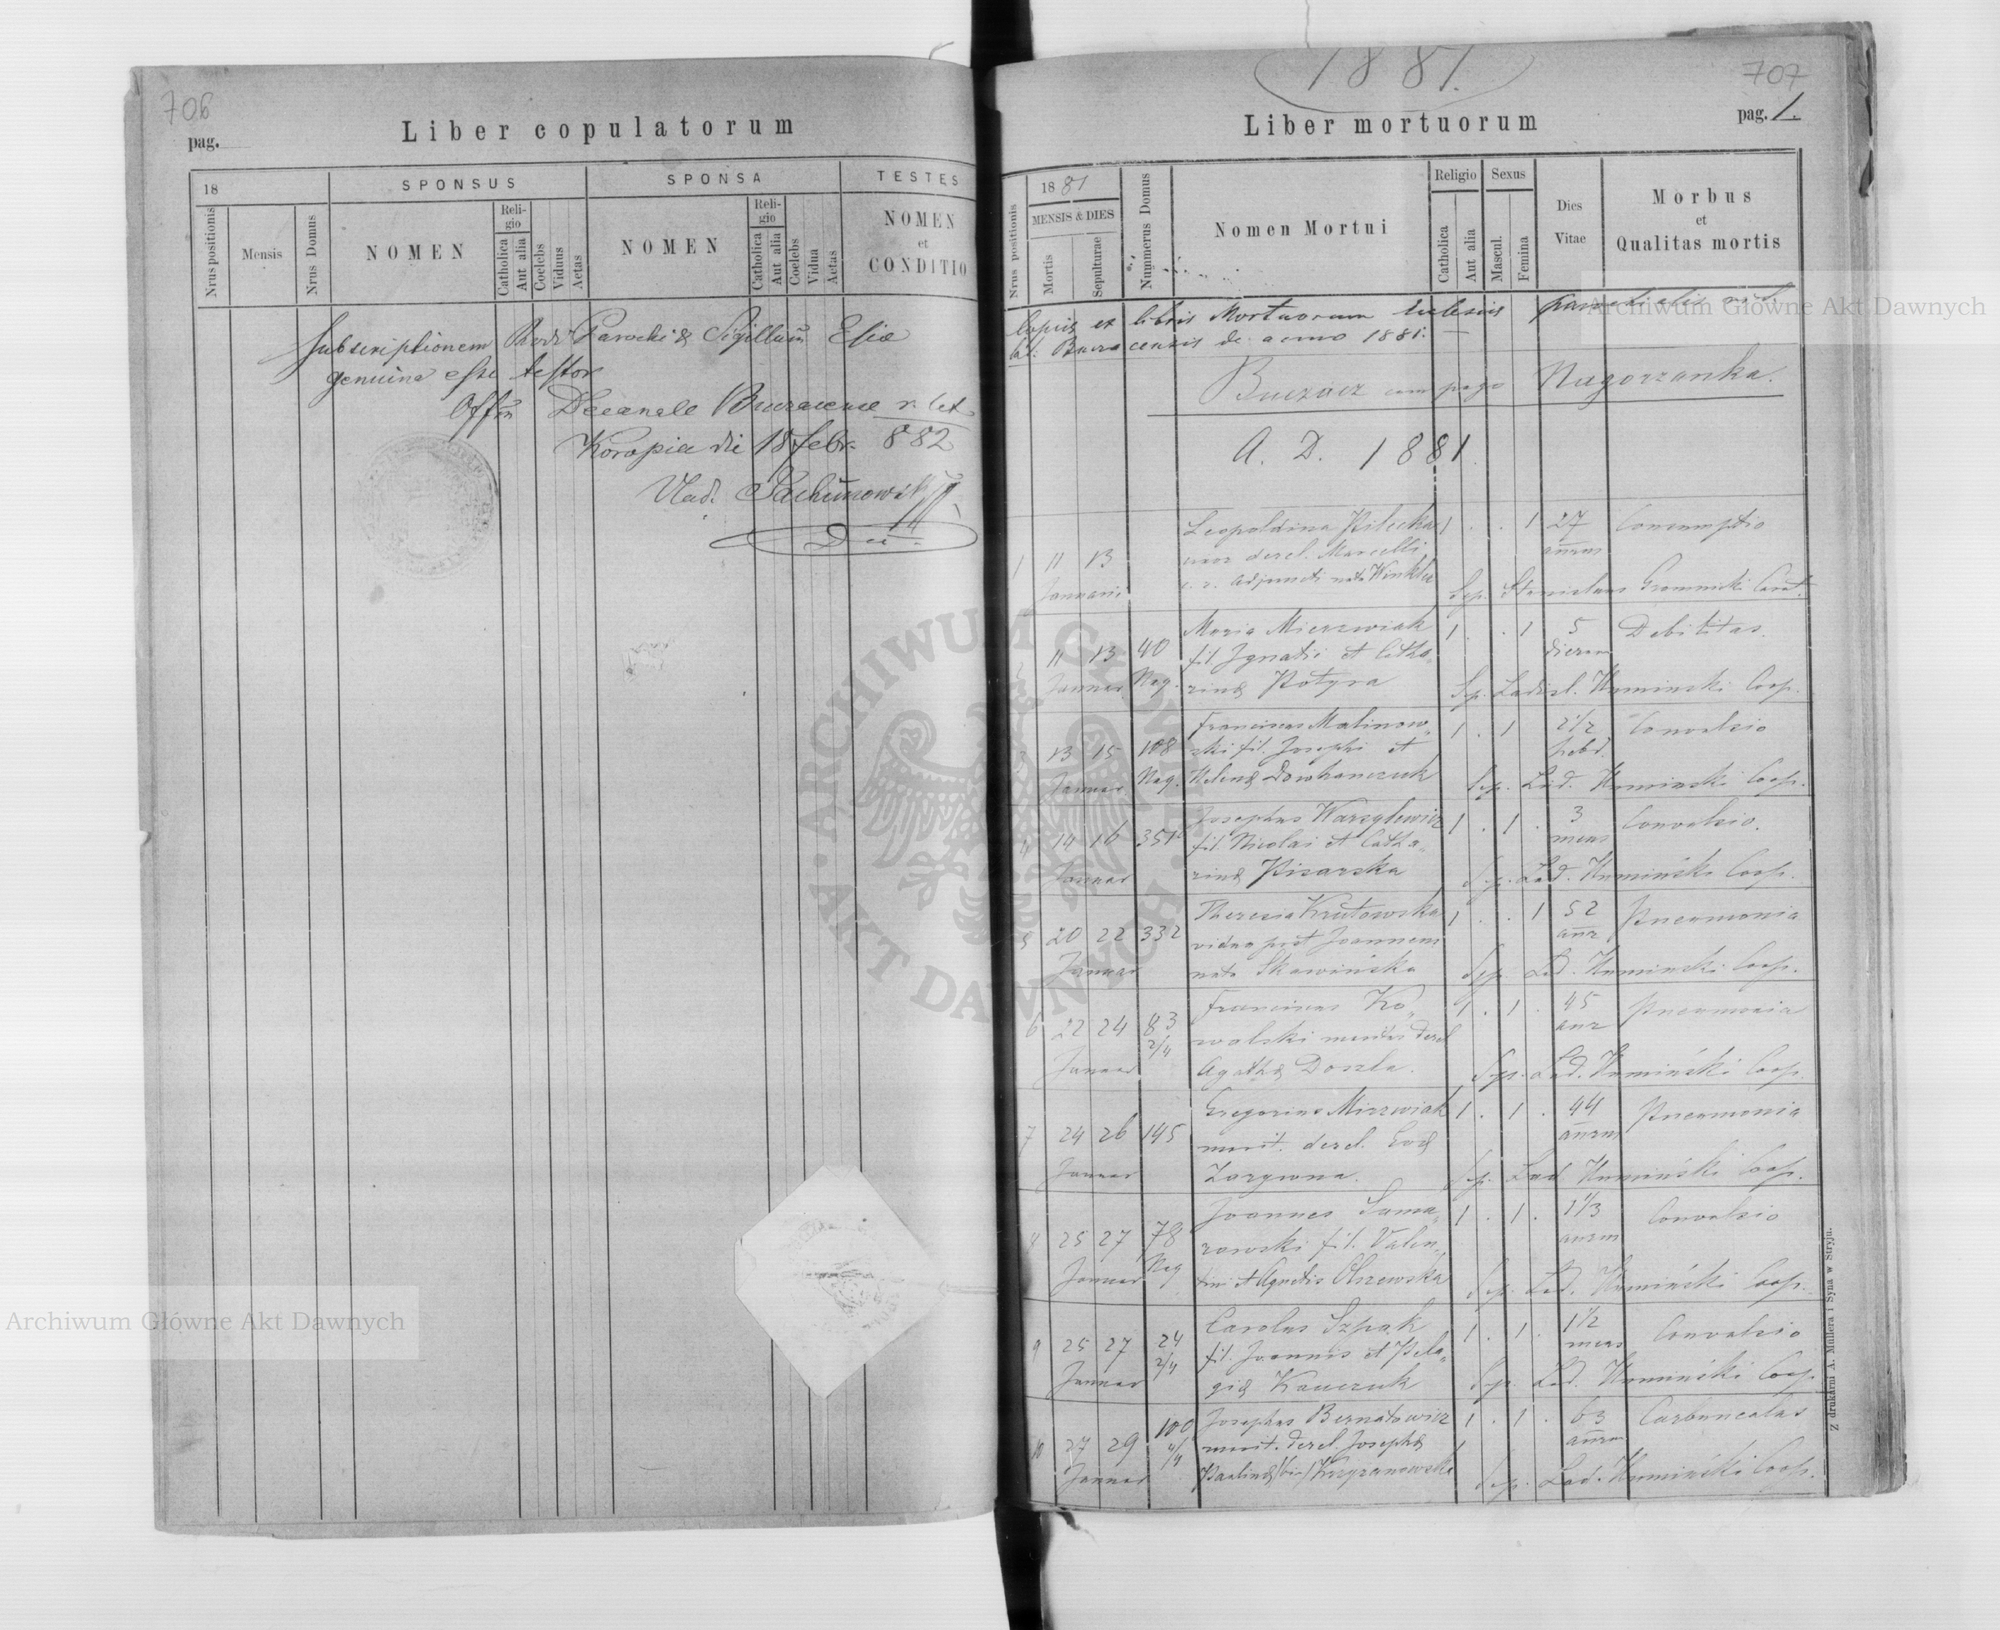 706
pag.
Liber copulatorum
18
SPONSUS
SPONSA
TESTES
Nrus positionis
Mensis
Nrus Domus
NOMEN
Religio
Catholica
Aut alia
Coelebs
Viduus
Aetas
NOMEN
Religio
Catholica
Aut alia
Coelebs
Vidua
Aetas
NOMEN
et
CONDITIO
Subscriptionem Rndi Parochi & Sigillum Eliae
genuina esse testor
Offm Decanale Buczacense r. lat.
Koropia die 18 febr. 882
Vlad.
Dec.
1881.
707
Liber mortuorum
pag. 1.
Nrus positionis
1881
MENSIS & DIES
Mortis
Sepulturae
Nummerus Domus
Nomen Mortui
Religio
Catholica
Aut alia
Sexus
Mascul.
Femina
Dies
Vitae
Morbus
et
Qualitas mortis
Copia ex libris Mortuorum Eclesiae parochialis rit.
lat. Buczacensis de anno 1881. —
Buczacz cum pago Nagorzanka.
A. D. 1881.
Leopoldina Pilecka 1 . . 1 27 Consumptio
uxor derel. Marcelli annrum
1 11 13 c. r. adjuncti nata Winkler
Januarii Sep. Stanislaus Gromnicki Can.
Maria Mierzwiak 1 . . 1 5 Debilitas.
2 11 13 40 fil. Ignatii et Catha- dierum
Januar Nag. rinae Potyra Sep. Ladisl. Kumiński Coop.
Franciscus Malinow- 1 . 1 2 1/2 Convulsio
3 13 15 108 ski fil. Josephi et hebd.
Januar Nag. Helenae Dowhanczuk Sep. Lad. Kumiński Coop.
Josephus Warzylewicz 1 . 1 . 3 Convulsio.
4 14 16 351 fil. Nicolai et Catha- mens
Januar rinae Pisarska Sep. Lad. Kumiński Coop.
Theresia Krutowska 1 . . 1 52 Pneumonia
5 20 22 332 vidua post Joannem annr
Januar nata Skawińska Sep. Lad. Kumiński Coop.
Franciscus Ko- 1 . 1 . 45 Pneumonia
6 22 24 83 2/4 walski maritus derel. annr
Januar Agathae Doszla. Sep. Lad. Kumiński Coop.
Gregorius Mierzwiak 1 . 1 . 44 Pneumonia
7 24 26 145 marit. derel. Evae annrum
Januar Zarywna. Sep. Lad. Kumiński Coop.
Joannes Sama- 1 . 1 . 1 1/3 Convulsio
8 25 27 78 rowski fil. Valen- annrum
Januar Nag tini et Agnetis Olszewska Sep. Lad. Kumiński Coop.
Carolus Szpak 1 . 1 . 1 1/2 Convulsio
9 25 27 24 2/4 fil. Joannis et Pela- mens
Januar giae Kawczuk Sep. Lad. Kumiński Coop.
Josephus Bernatowicz 1 . 1 . 63 Carbunculus
10 27 29 100 4/4 marit. derel. Josephae annrum
Januar Paulinae (bin) Krzyzanowska Sep. Lad. Kumiński Coop.
Z drukarni A. Müllera i Syna w Stryju.
Archiwum Główne Akt Dawnych
Archiwum Główne Akt Dawnych
ARCHIWUM GŁÓWNE AKT DAWNYCH